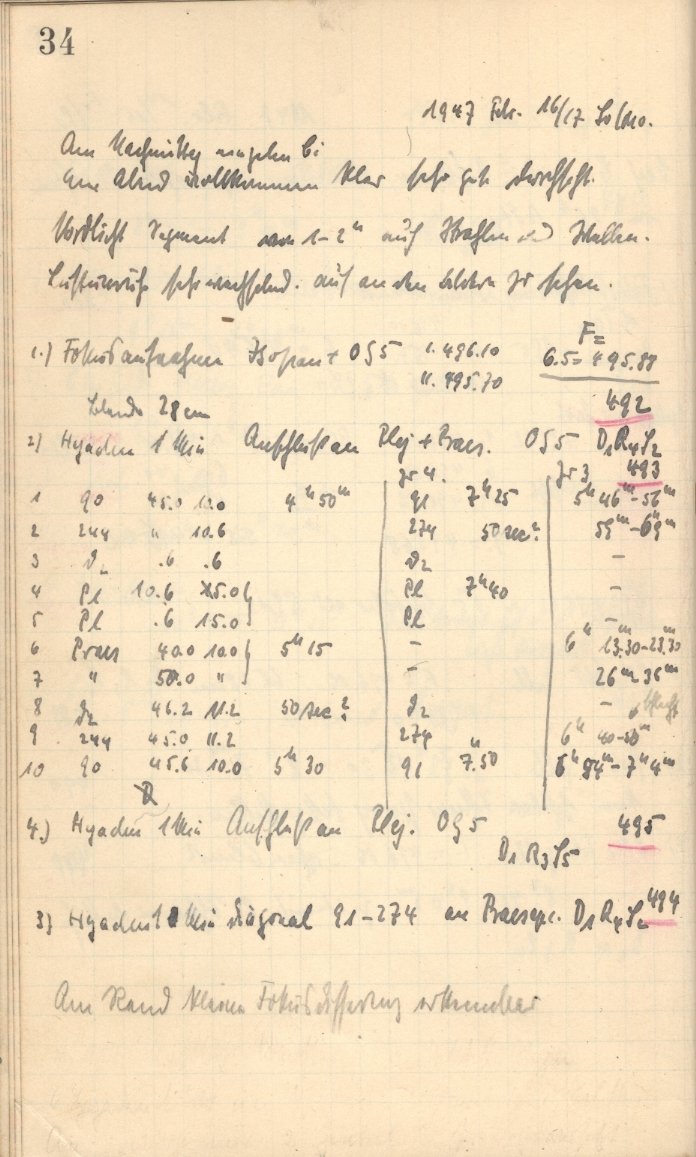 34
1947 Febr. 16/17 So/Mo.
Am Nachmittag
Am Abend vollkommen klar sehr gute durchsicht.
Nordlicht Segment von 1-2h auf Strahlen und Wellen.
Luftunruhe sehr wechselnd. auch an den Bildern zu sehen.
1.) Fokusaufnahmen Isopan + OG5 I. 496.10 F=
II. 495.70 6.5 = 495.88
Blende 28 cm 492
2) Hyaden 1 Min Anschluß an Plej + Praes. OG5 D1R4S2
gr 4. gr 3 493
1 90 45.0 10.0 4h50m 91 7h25 5h46m-56m
2 244 " 10.6 274 50sec? 59m-6h9m
3 ϑ2 .6 .6 ϑ2 -
4 Pl 10.6 15.0 } Pl 7h40 -
5 Pl .6 15.0 } Pl -
6 Praes 40.0 10.0 } 5h15 - 6h 13.30-23.30
7 " 50.0 " } - 26m-36m
8 ϑ2 46.2 11.2 50sec? ϑ2 -
9 244 45.0 11.2 274 6h 40-50m
10 90 45.6 10.0 5h30 91 7h50 6h54m-7h4m
4.) Hyaden 1 Min Anschluß an Plej. OG5 495
D1R3S5
3) Hyaden 1 Min diagonal 91-274 an Praesepe. D1R4S2 494
Am Rand kleine Fokusdifferenz erkennbar